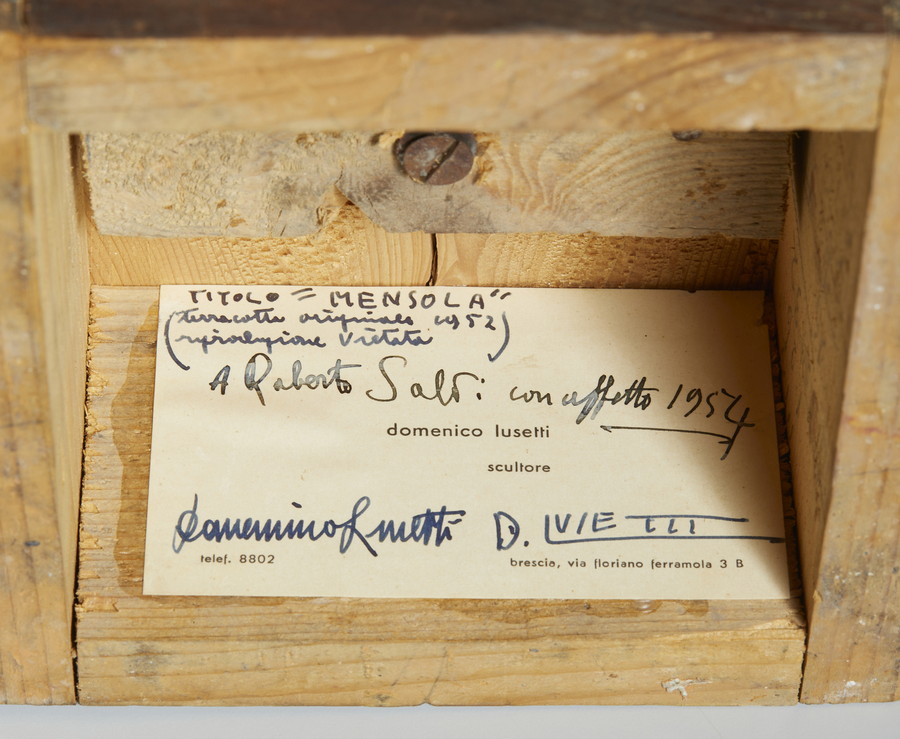 TITOLO = MENSOLA"
(terracotta originale 1952)
(riproduzione Vietata)
A Roberto Saldi con affetto 1954
domenico lusetti
scultore
Domenico Lusetti D.
telef. 8802
brescia, via floriano ferramola 3 B